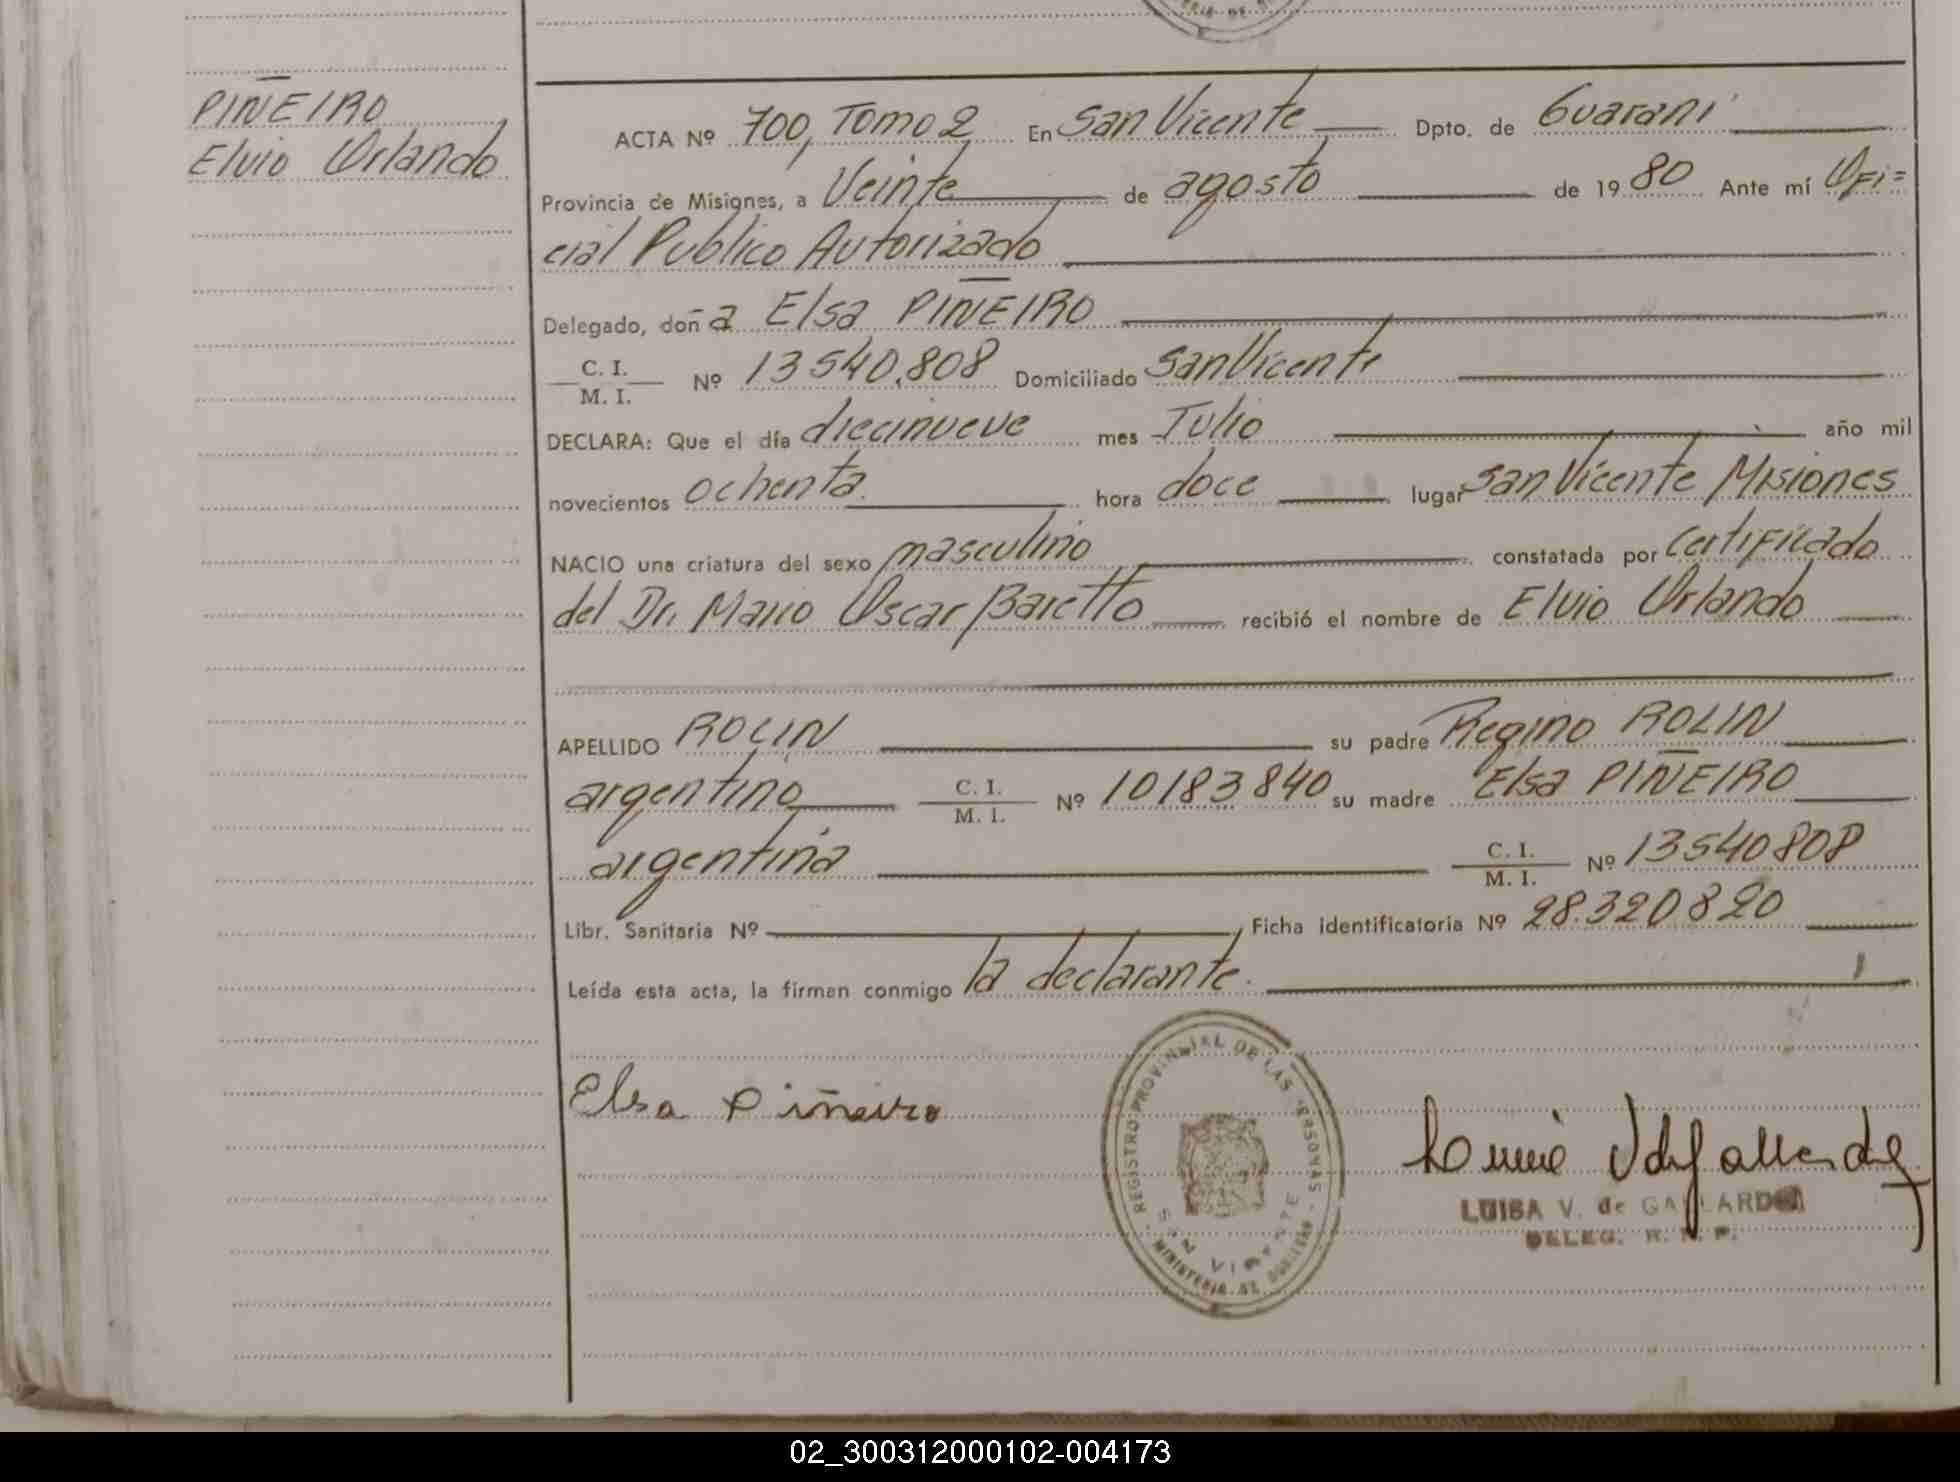 PIÑEIRO
Elvio Orlando
ACTA Nº 700, Tomo 2 En San Vicente Dpto. de Guaraní
Provincia de Misiones, a Veinte de agosto de 1980 Ante mí Ofi=
cial Publico Autorizado
Delegado, doña Elsa PIÑEIRO
C. I.
M. I.
Nº 13540.808 Domiciliado San Vicente
DECLARA: Que el día diecinueve mes Julio año mil
novecientos ochenta. hora doce lugar San Vicente Misiones
NACIO una criatura del sexo masculino constatada por Certificado
del Dr. Mario Oscar Baretto recibió el nombre de Elvio Orlando
APELLIDO ROLIN su padre Regino ROLIN
argentino C. I. M. I. Nº 10183840 su madre Elsa PIÑEIRO
argentina C. I. M. I. Nº 13540808
Libr. Sanitaria Nº Ficha identificatoria Nº 28.320820
Leída esta acta, la firman conmigo la declarante.
Elsa Piñeiro
REGISTRO PROVINCIAL DE LAS PERSONAS
SAN VICENTE
MINISTERIO DE GOBIERNO
LUISA V. de GALLARDO
DELEG. R. P. P.
02_300312000102-004173